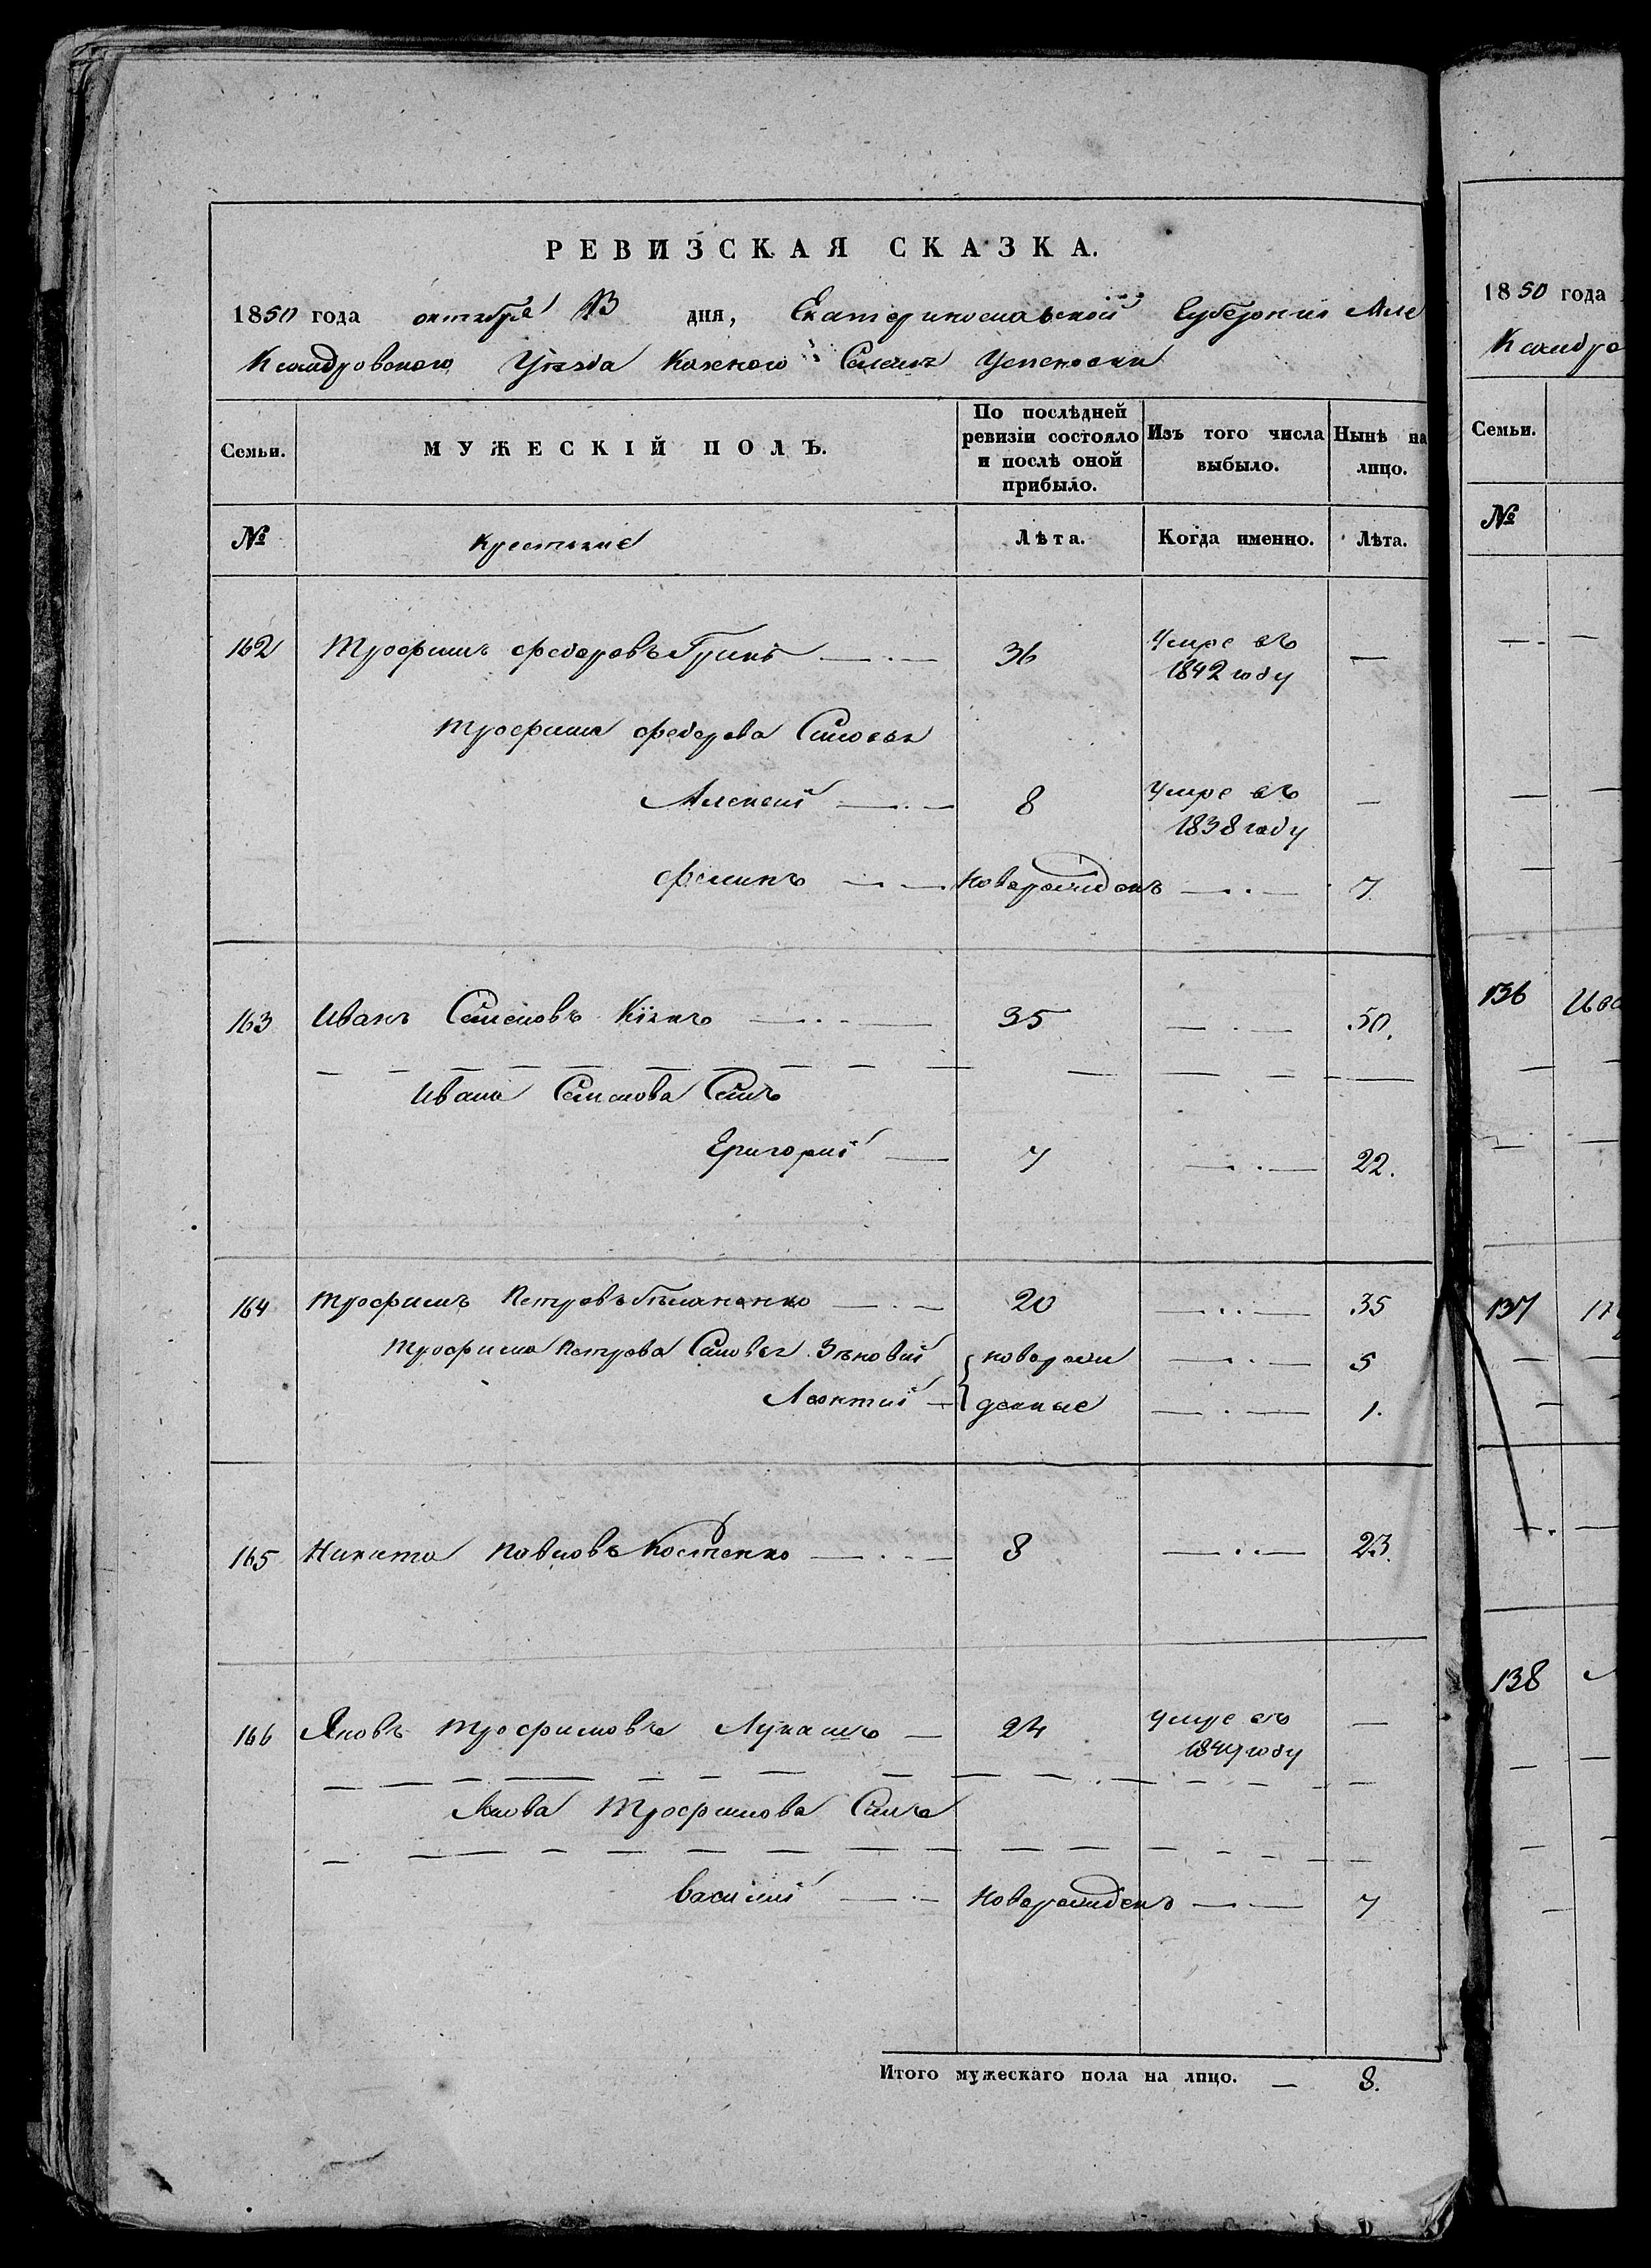 РЕВИЗСКАЯ СКАЗКА.
1850 года октября 13 дня, Екатеринославской Губернии Але
Ксандровского Уѣзда Казеного Селенія Успеновки
Семьи. МУЖЕСКІЙ ПОЛЪ. По послѣдней ревизіи состояло и послѣ оной прибыло. Изъ того числа выбыло. Нынѣ на лицо.
№ крестьяне Лѣта. Когда именно. Лѣта.
162 Трофимъ Федоровъ 36 умре въ —
1842 году
Трофима Федорова Сыновья
Алексей 8 умре въ —
1838 году
новорожденъ 7.
163 Иванъ Семеновъ 35 50.
Ивана Семенова Сынъ
Григорий 7 22.
164 Трофимъ Петровъ 20 35
Трофима Петрова Сыновья Зѣновий новорож 5
Леонтий денные 1.
165 Никита Павловъ Костенко 8 23.
166 Яковъ Трофимовъ Лукашъ 24 умре въ —
году
Якова Трофимова Сынъ
Василий Новорожденъ 7
Итого мужескаго пола на лицо. — 8.
1850 года
Ксандро
Семьи.
№
136 Ива
137
138